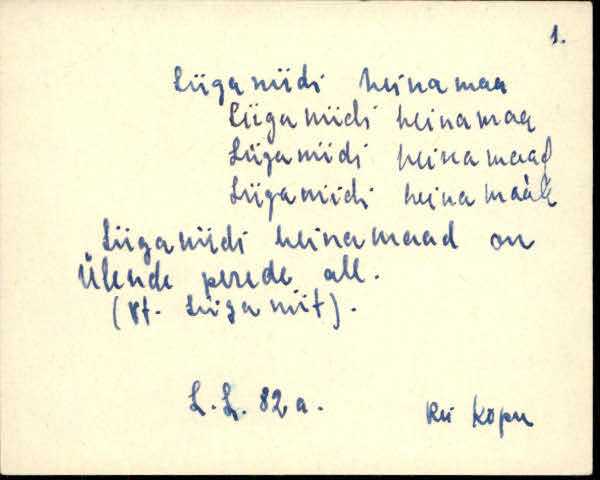 1.
Liiganiidi heinamaa
Liiganiidi heinamaa
Liiganiidi heinamaad
Liiganiidi heinamààle
Liiganiidi heinamaad on
Ülende perede all.
(vt. Liiganiit).
L.L. 82 a.
Rei Kõpu